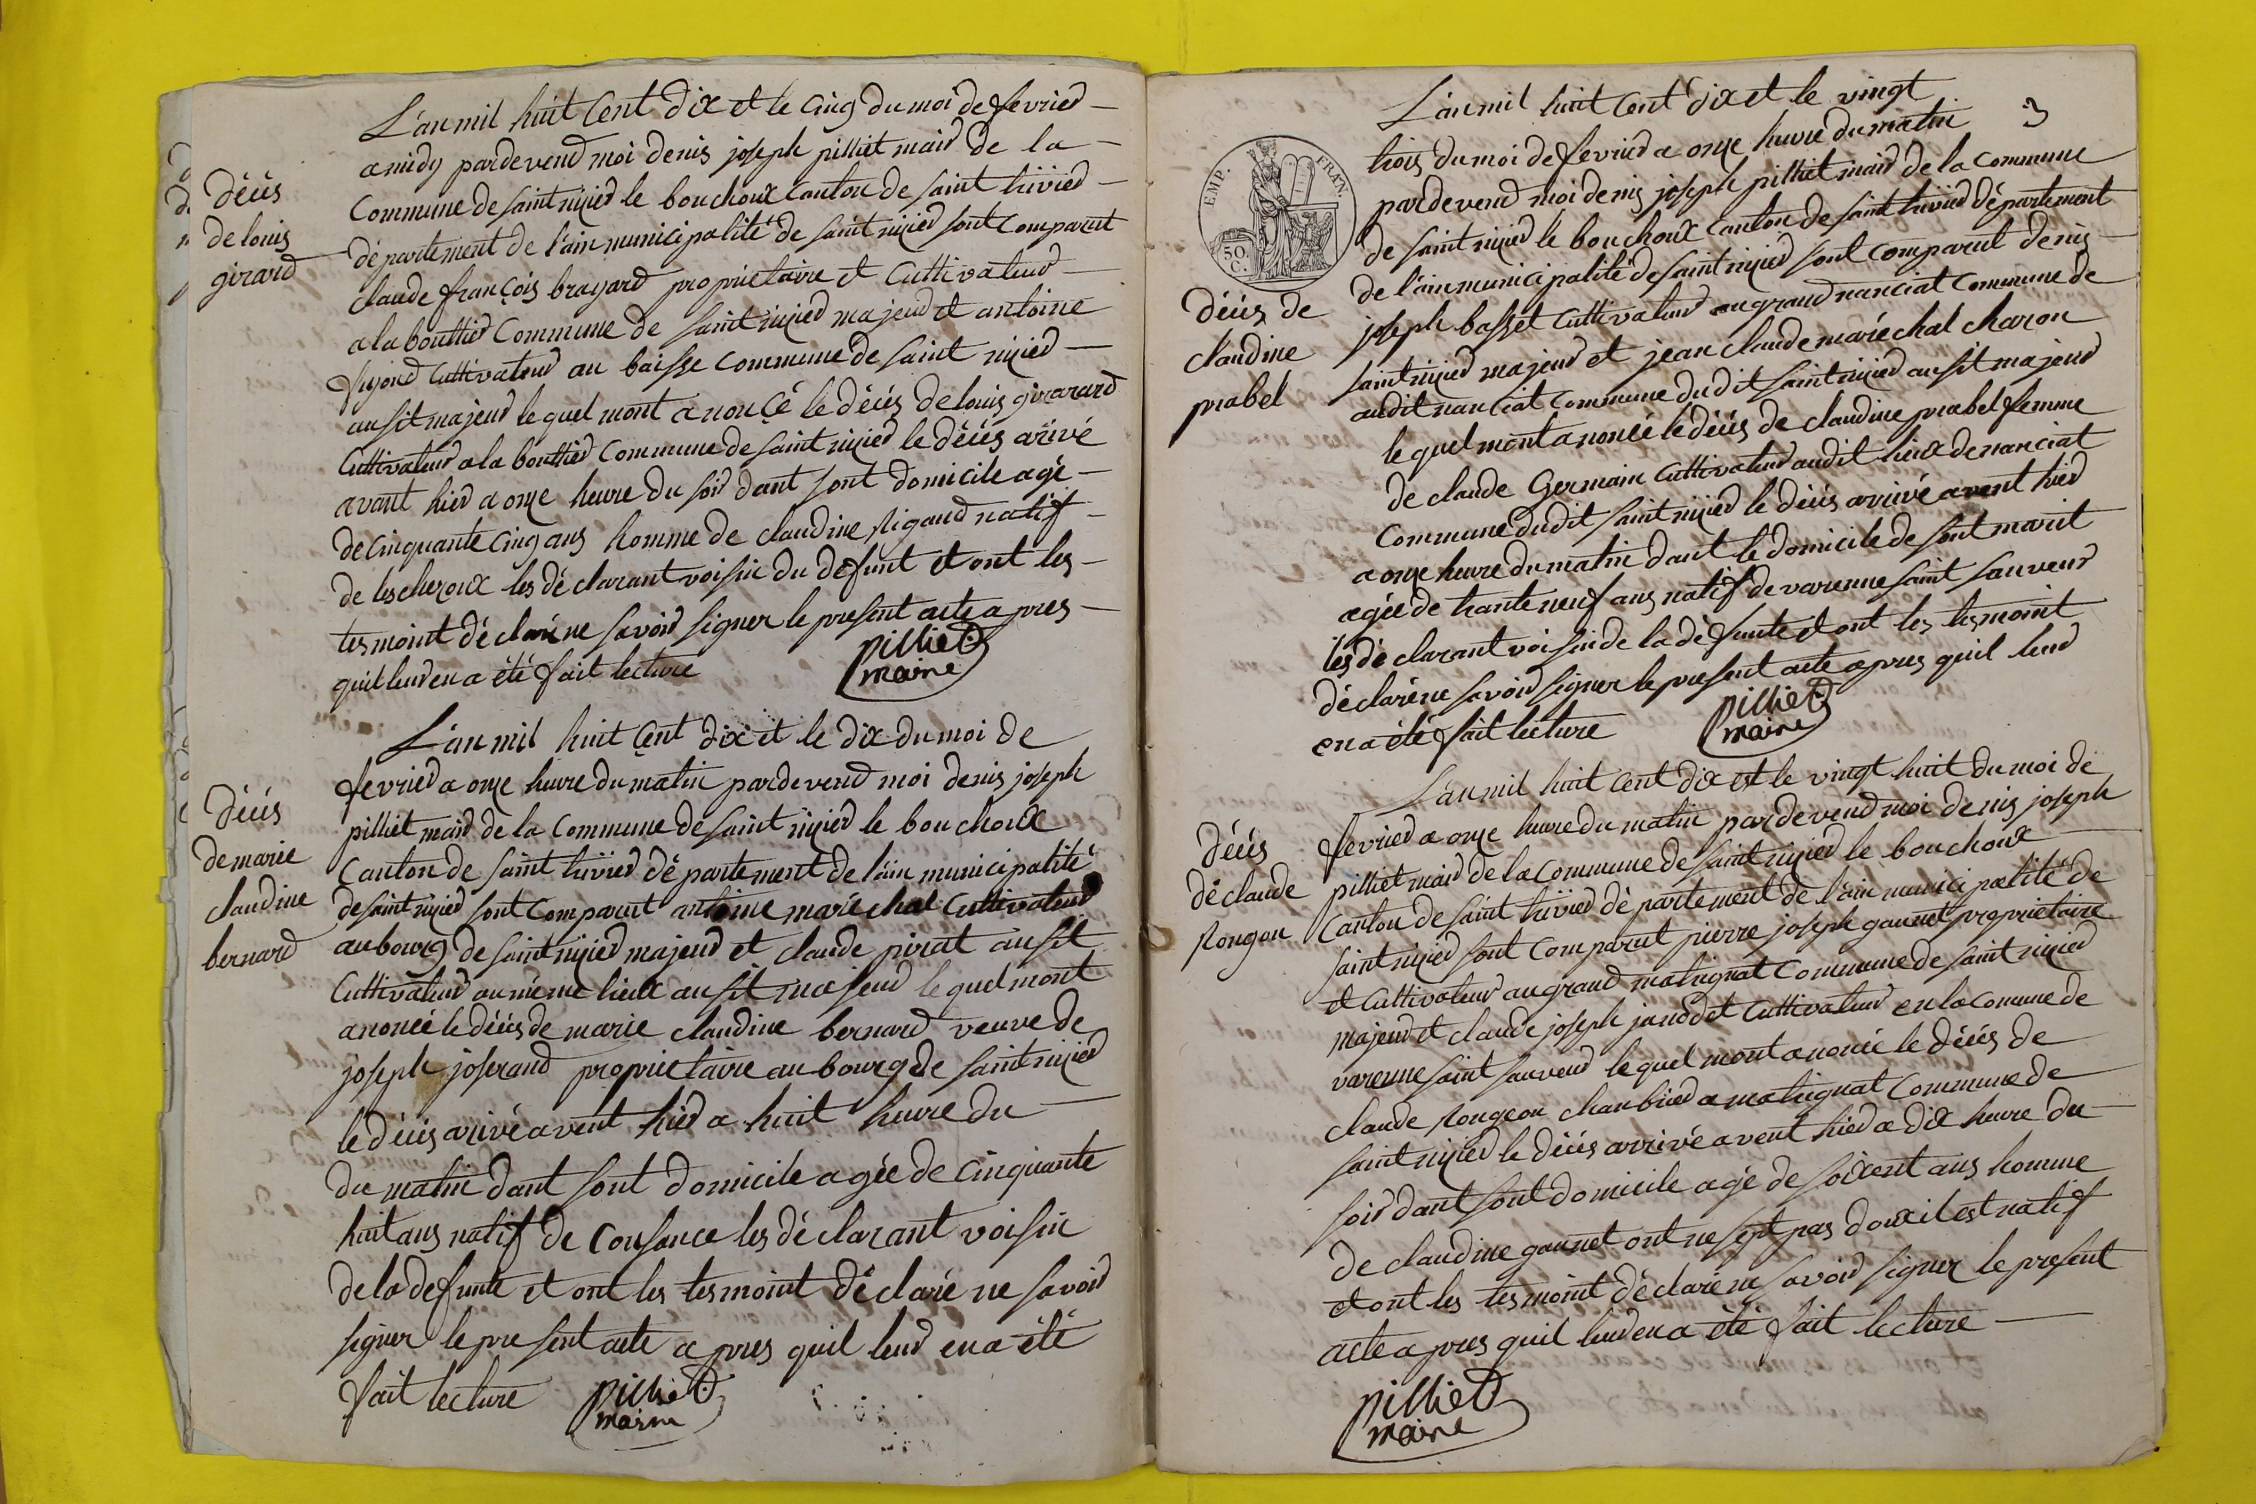 Déćés
de louis
girard
L'an mil huit Cent dix et le cinq du moi de fevrier
a midy pardevend moi denis joseph pilliet mair de la
Commune de saint nizier le bouchoux Canton de saint trivier
département de l'ain municipalité de saint nizier sont comparut
claude françois brayard proprietaire et Cultivateur
a la bouttier Commune de saint nizier majeur et antoine
Cultivateur au baisse commune de saint nizier
ausit majeur le quel mont anonçé le décés de louis girarard
Cultivateur a la bouttier Commune de saint nizier le décés arivé
avant hier a onze heure du soir dant sont domicile agé
de cinquante cinq ans homme de claudine Rigaud natif
de lescheroux les déclarant voisin du defunt et ont les
tesmoint déclaré ne savoir signer le present acte apres
quil leur en a été fait lecture
pilliet
maire
Décés
de marie
claudine
bernard
L'an mil huit Cent dix et le dix du moi de
fevrier a onze heure du matin pardevend moi denis joseph
pilliet mair de la Commune de saint nizier le bouchoux
Canton de saint trivier département de l'ain municipalité
de saint nizier sont Comparut antoine maréchal Cultivateur
au bourg de saint nizier majeur et claude pirat ausit
Cultivateur au même lieux ausit majeur le quel mont
anoncé le décés de marie claudine bernard veuve de
joseph joserand proprietaire au bourg de saint nizier
le décés arivé avent hier a huit heure du
du matin dant sont domicile agée de cinquante
huit ans natif de Cousance les déclarant voisin
de la defunte et ont les tesmoint déclaré ne savoir
signer le present acte apres quil leur en a été
fait lecture
pilliet
maire
3
EMP. FRAN.
50
C.
Décés de
claudine
prabel
L'an mil huit Cent dix et le vingt
trois du moi de fevrier a onze heure du matin
pardevend moi denis joseph pilliet mair de la Commune
de saint nizier le bouchoux Canton de saint trivier département
de l'ain municipalité de saint nizier sont comparut denis
joseph basset Cultivateur au grand nanciat Commune de
saint nizier majeur et jean claude maréchal charon
audit nanciat Commune dudit saint nizier ausit majeur
le quel mont anoncé le décés de claudine prabel femme
de claude Germain Cultivateur audit lieux de nanciat
Commune dudit saint nizier le décés arrivé avent hier
a onze heure du matin dant le domicile de sont marit
agée de trante neuf ans natif de varenne saint sauveur
les déclarant voisin de la défunte et ont les tesmoint
déclaré ne savoir signer le present acte apres quil leur
en a été fait lecture
pilliet
maire
Décés
de claude
Rongeon
L'an mil huit Cent dix est le vingt huit du moi de
fevrier a onze heure du matin pardevend moi denis joseph
pilliet mair de la Commune de saint nizier le bouchoux
Canton de saint trivier département de l'ain municipalité de
saint nizier sont comparut pierre joseph gaunet proprietaire
et Cultivateur au grand matrignat Commune de saint nizier
majeur et claude joseph janodet Cultivateur en la comune de
varenne saint sauveur le quel mont anoncé le décés de
claude Rongeon chanbrier a matrignat Commune de
saint nizier le décés arrivé avent hier a dix heure du
soir dant sont domicile agé de soixent ans homme
de claudine gaunet ont ne sept pas doux il est natif
et ont les tesmoint déclaré ne savoir signer le present
acte apres quil leur en a été fait lecture
pilliet
maire